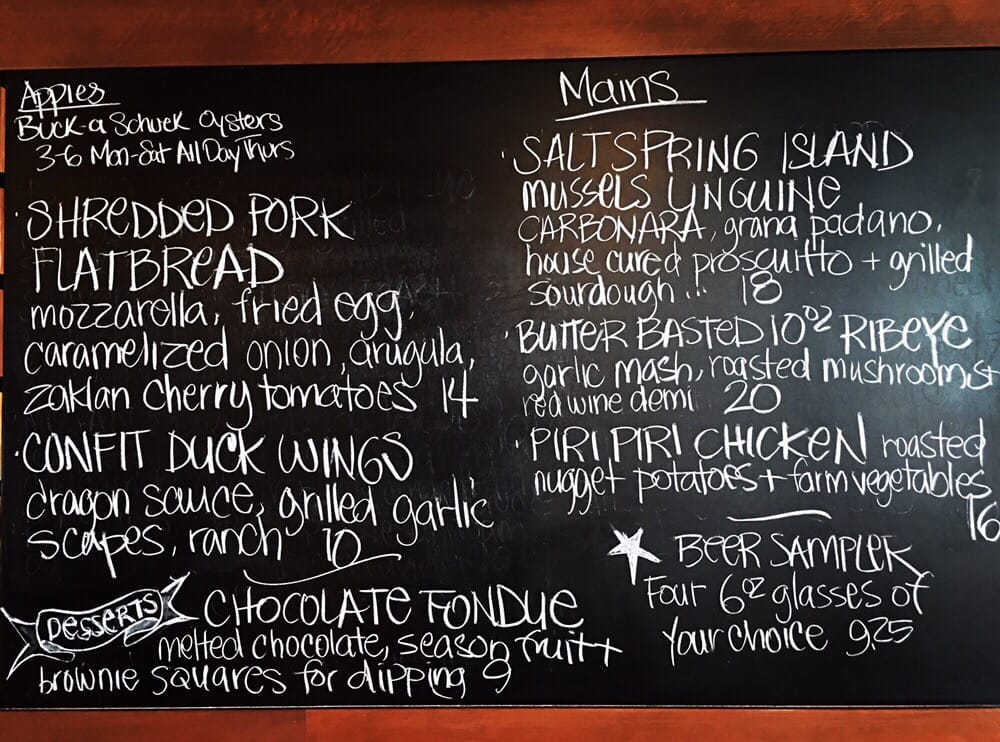 Appies
Buck-a Schuck Oysters
3-6 Mon-Sat All Day Thurs
· SHREDDED PORK
FLATBREAD
mozzarella, fried egg,
caramelized onion, arugula,
zaklan cherry tomatoes 14
· CONFIT DUCK WINGS
dragon sauce, grilled garlic
scapes, ranch 10
DESSERTS CHOCOLATE FONDUE
melted chocolate, season fruit +
brownie squares for dipping 9
Mains
· SALTSPRING ISLAND
mussels LINGUINE
CARBONARA, grana padano,
house cured proscuitto + grilled
sourdough... 18
· BUTTER BASTED 10oz RIBEYE
garlic mash, roasted mushrooms +
red wine demi 20
· PIRI PIRI CHICKEN roasted
nugget potatoes + farm vegetables
16
BEER SAMPLER
Four 6oz glasses of
your choice 9.25